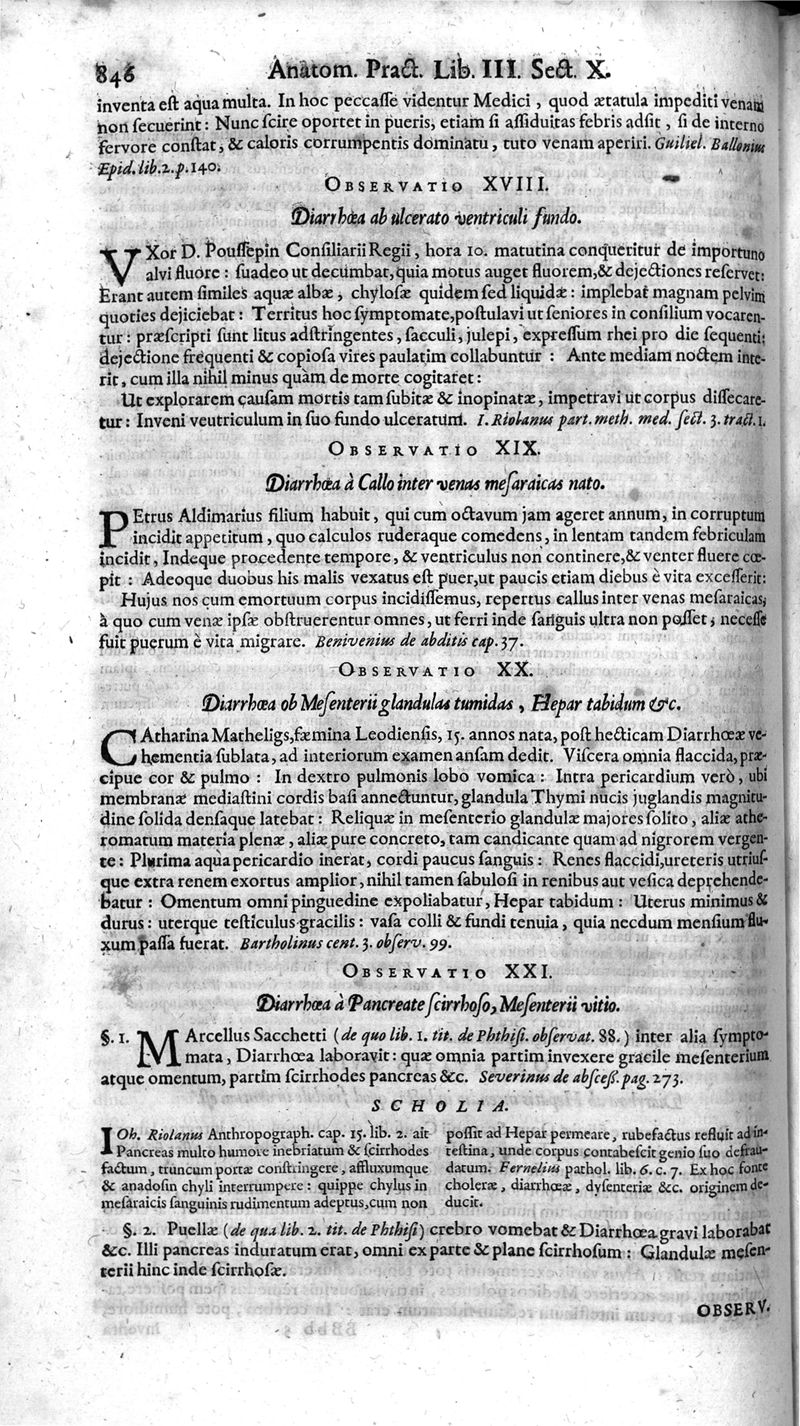 846 Anatom. Pract. Lib. III. Sect. X.
inventa eſt aqua multa. In hoc peccaſſe videntur Medici, quod ætatula impediti venam
non ſecuerint: Nunc ſcire oportet in pueris, etiam ſi aſſiduitas febris adſit, ſi de interno
fervore conſtat, & caloris corrumpentis dominatu, tuto venam aperiri. Guiliel. Ballonius
Epid. lib. 2. p. 140.
OBSERVATIO XVIII.
Diarrhœa ab ulcerato ventriculi fundo.
VXor D. Pouſſepin Conſiliarii Regii, hora 10. matutina conqueritur de importuno
alvi fluore: ſuadeo ut decumbat, quia motus auget fluorem, & dejectiones reſervet:
Erant autem ſimiles aquæ albæ, chyloſæ quidem ſed liquidæ: implebat magnam pelvim
quoties dejiciebat: Territus hoc ſymptomate, poſtulavi ut ſeniores in conſilium vocaren-
tur: præſcripti ſunt litus adſtringentes, ſacculi, julepi, expreſſum rhei pro die ſequenti;
dejectione frequenti & copioſa vires paulatim collabuntur: Ante mediam noctem inte-
rit, cum illa nihil minus quàm de morte cogitaret:
Ut explorarem cauſam mortis tam ſubitæ & inopinatæ, impetravi ut corpus diſſecare-
tur: Inveni veutriculum in ſuo fundo ulceratum. I. Riolanus part. meth. med. ſect. 3. tract. 1.
OBSERVATIO XIX.
Diarrhœa à Callo inter venas meſaraicas nato.
PEtrus Aldimarius filium habuit, qui cum octavum jam ageret annum, in corruptum
incidit appetitum, quo calculos ruderaque comedens, in lentam tandem febriculam
incidit, Indeque procedente tempore, & ventriculus non continere, & venter fluere cœ-
pit: Adeoque duobus his malis vexatus eſt puer, ut paucis etiam diebus è vita exceſſerit:
Hujus nos cum emortuum corpus incidiſſemus, repertus callus inter venas meſaraicas,
à quo cum venæ ipſæ obſtruerentur omnes, ut ferri inde ſanguis ultra non poſſet, neceſſe
fuit puerum è vita migrare. Benivenius de abditis cap. 37.
OBSERVATIO XX.
Diarrhœa ob Meſenterii glandulas tumidas, Hepar tabidum &c.
CAtharina Matheligs, fæmina Leodienſis, 15. annos nata, poſt hecticam Diarrhœæ ve-
hementia ſublata, ad interiorum examen anſam dedit. Viſcera omnia flaccida, præ-
cipue cor & pulmo: In dextro pulmonis lobo vomica: Intra pericardium verò, ubi
membranæ mediaſtini cordis baſi annectuntur, glandula Thymi nucis juglandis magnitu-
dine ſolida denſaque latebat: Reliquæ in meſenterio glandulæ majores ſolito, aliæ athe-
romatum materia plenæ, aliæ pure concreto, tam candicante quam ad nigrorem vergen-
te: Plurima aqua pericardio inerat, cordi paucus ſanguis: Renes flaccidi, ureteris utriuſ-
que extra renem exortus amplior, nihil tamen ſabuloſi in renibus aut veſica deprehende-
batur: Omentum omni pinguedine expoliabatur, Hepar tabidum: Uterus minimus &
durus: uterque teſticulus gracilis: vaſa colli & fundi tenuia, quia necdum menſium flu-
xum paſſa fuerat. Bartholinus cent. 3. obſerv. 99.
OBSERVATIO XXI.
Diarrhœa à Pancreate ſcirrhoſo, Meſenterii vitio.
§. 1. MArcellus Sacchetti (de quo lib. 1. tit. de Phthiſi. obſervat. 88.) inter alia ſympto-
mata, Diarrhœa laboravit: quæ omnia partim invexere gracile meſenterium
atque omentum, partim ſcirrhodes pancreas &c. Severinus de abſceſſ. pag. 273.
SCHOLIA.
IOh. Riolanus Anthropograph. cap. 15. lib. 2. ait
Pancreas multo humore inebriatum & ſcirrhodes
factum, truncum portæ conſtringere, affluxumque
& anadoſin chyli interrumpere: quippe chylus in
meſaraicis ſanguinis rudimentum adeptus, cum non
poſſit ad Hepar permeare, rubefactus refluit ad in-
teſtina, unde corpus contabeſcit genio ſuo defrau-
datum. Fernelius pathol. lib. 6. c. 7. Ex hoc fonte
choleræ, diarrhœæ, dyſenteriæ &c. originem de-
ducit.
§. 2. Puellæ (de qua lib. 2. tit. de Phthiſi) crebro vomebat & Diarrhœa gravi laborabat
&c. Illi pancreas induratum erat, omni ex parte & plane ſcirrhoſum: Glandulæ meſen-
terii hinc inde ſcirrhoſæ.
OBSERV.